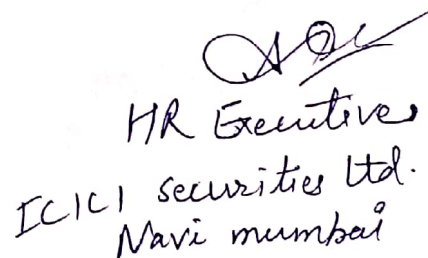 HR Executive
ICICI securities Ltd.
Navi mumbai